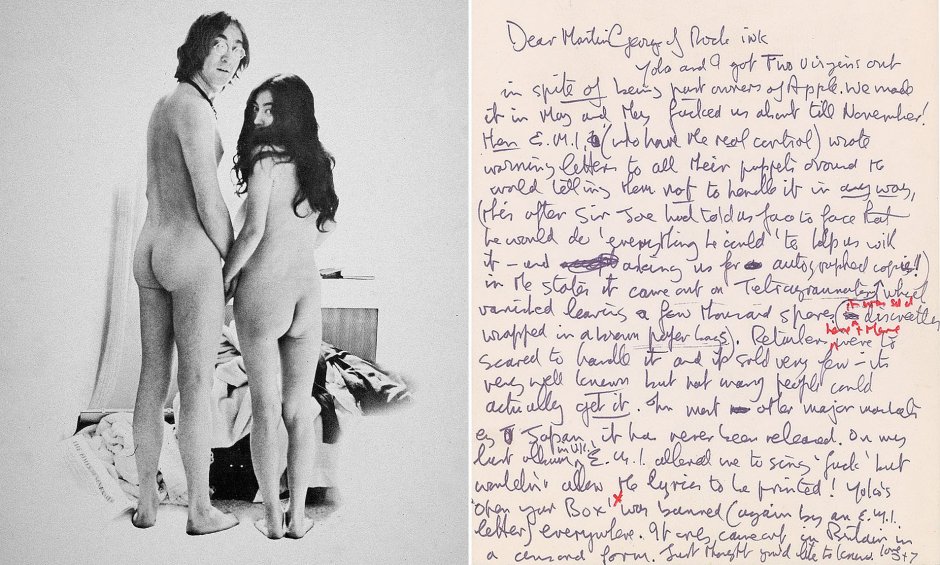 Dear Martin George of Rock ink
Yoko and I got Two Virgins out
in spite of being part owners of Apple. We made
it in May and they fucked us about till November!
Then E.M.I. (who have the real control) wrote
warning letters to all their puppets around the
world telling them not to handle it in any way,
(this after Sir Joe had told us face to face that
he would do 'everything he could' to help us with
it – and asking us for autographed copies!!)
in the states it came out on Tetragrammaton (which
vanished leaving a few thousand spare (it was sold discreetly
here + there
wrapped in a brown paper bags). Retailers were to
scared to handle it and it sold very few – its
very well known but not many people could
actually get it. In most other major markets
eg Japan, it has never been released. On my
last album, in U.K., E.M.I. allowed me to sing 'fuck' but
wouldn't allow the lyrics to be printed! Yoko's
'Open your Box' x was banned (again by an E.M.I.
letter) everywhere. It only came out in Britain in
a censored form. Just thought you'd like to know. love